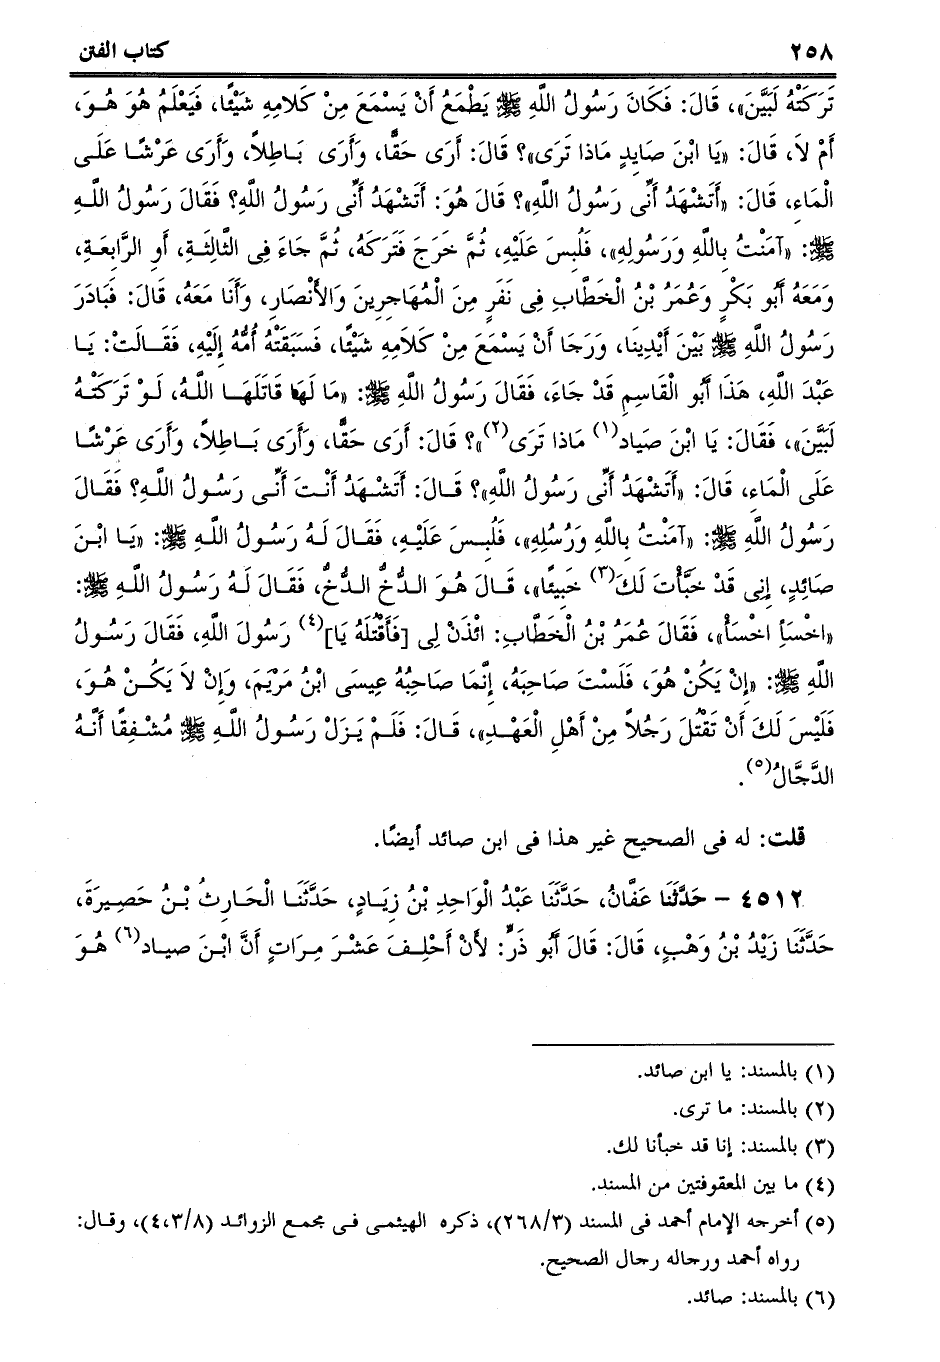 ٢٥٨ كتاب الفتن
تَرَكَتْهُ لَبَيَّنَ»، قَالَ: فَكَانَ رَسُولُ اللَّهِ ﷺ يَطْمَعُ أَنْ يَسْمَعَ مِنْ كَلامِهِ شَيْئًا، فَيَعْلَمُ هُوَ هُوَ،
أَمْ لاَ، قَالَ: «يَا ابْنَ صَايِدٍ مَاذا تَرَى»؟ قَالَ: أَرَى حَقًّا، وَأَرَى بَاطِلاً، وَأَرَى عَرْشًا عَلَى
الْمَاءِ، قَالَ: «أَتَشْهَدُ أَنِّى رَسُولُ اللَّهِ»؟ قَالَ هُوَ: أَتَشْهَدُ أَنِّى رَسُولُ اللَّهِ؟ فَقَالَ رَسُولُ اللَّهِ
ﷺ: «آمَنْتُ بِاللَّهِ وَرَسُولِهِ»، فَلُبِسَ عَلَيْهِ، ثُمَّ خَرَجَ فَتَرَكَهُ، ثُمَّ جَاءَ فِى الثَّالِثَةِ، أَوِ الرَّابِعَةِ،
وَمَعَهُ أَبُو بَكْرٍ وَعُمَرُ بْنُ الْخَطَّابِ فِى نَفَرٍ مِنَ الْمُهَاجِرِينَ وَالأَنْصَارِ، وَأَنَا مَعَهُ، قَالَ: فَبَادَرَ
رَسُولُ اللَّهِ ﷺ بَيْنَ أَيْدِينَا، وَرَجَا أَنْ يَسْمَعَ مِنْ كَلامِهِ شَيْئًا، فَسَبَقَتْهُ أُمُّهُ إِلَيْهِ، فَقَالَتْ: يَا
عَبْدَ اللَّهِ، هَذَا أَبُو الْقَاسِمِ قَدْ جَاءَ، فَقَالَ رَسُولُ اللَّهِ ﷺ: «مَا لَهَا قَاتَلَهَا اللَّهُ، لَوْ تَرَكَتْهُ
لَبَيَّنَ»، فَقَالَ: يَا ابْنَ صَيَاد(١) مَاذا تَرَى(٢)»؟ قَالَ: أَرَى حَقًّا، وَأَرَى بَاطِلاً، وَأَرَى عَرْشًا
عَلَى الْمَاءِ، قَالَ: «أَتَشْهَدُ أَنِّى رَسُولُ اللَّهِ»؟ قَالَ: أَتَشْهَدُ أَنْتَ أَنِّى رَسُولُ اللَّهِ؟ فَقَالَ
رَسُولُ اللَّهِ ﷺ: «آمَنْتُ بِاللَّهِ وَرُسُلِهِ»، فَلُبِسَ عَلَيْهِ، فَقَالَ لَهُ رَسُولُ اللَّهِ ﷺ: «يَا ابْنَ
صَائِدٍ، إِنِى قَدْ خَبَّأْتَ لَكَ(٣) خَبِيئًا»، قَالَ هُوَ الدُّخُّ الدُّخُّ، فَقَالَ لَهُ رَسُولُ اللَّهِ ﷺ:
«اخْسَأِ اخْسَأْ»، فَقَالَ عُمَرُ بْنُ الْخَطَّابِ: ائْذَنْ لِى [فَأَقْتُلَهُ يَا](٤) رَسُولَ اللَّهِ، فَقَالَ رَسُولُ
اللَّهِ ﷺ: «إِنْ يَكُنْ هُوَ، فَلَسْتَ صَاحِبَهُ، إِنَّمَا صَاحِبُهُ عِيسَى ابْنُ مَرْيَمَ، وَإِنْ لاَ يَكُنْ هُوَ،
فَلَيْسَ لَكَ أَنْ تَقْتُلَ رَجُلاً مِنْ أَهْلِ الْعَهْدِ»، قَالَ: فَلَمْ يَزَلْ رَسُولُ اللَّهِ ﷺ مُشْفِقًا أَنَّهُ
الدَّجَّالُ(٥).
قلت: له فى الصحيح غير هذا فى ابن صائد أيضًا.
٤٥١٢ – حَدَّثَنَا عَفَّانُ، حَدَّثَنَا عَبْدُ الْوَاحِدِ بْنُ زِيَادٍ، حَدَّثَنَا الْحَارِثُ بْنُ حَصِيرَةَ،
حَدَّثَنَا زَيْدُ بْنُ وَهْبٍ، قَالَ: قَالَ أَبُو ذَرٍّ: لأَنْ أَحْلِفَ عَشْرَ مِرَاتٍ أَنَّ ابْنَ صياد(٦) هُوَ
(١) بالمسند: يا ابن صائد.
(٢) بالمسند: ما ترى.
(٣) بالمسند: إنا قد خبأنا لك.
(٤) ما بين المعقوفتين من المسند.
(٥) أخرجه الإمام أحمد فى المسند (٢٦٨/٣)، ذكره الهيثمى فى مجمع الزوائد (٤،٣/٨)، وقال:
رواه أحمد ورجاله رجال الصحيح.
(٦) بالمسند: صائد.